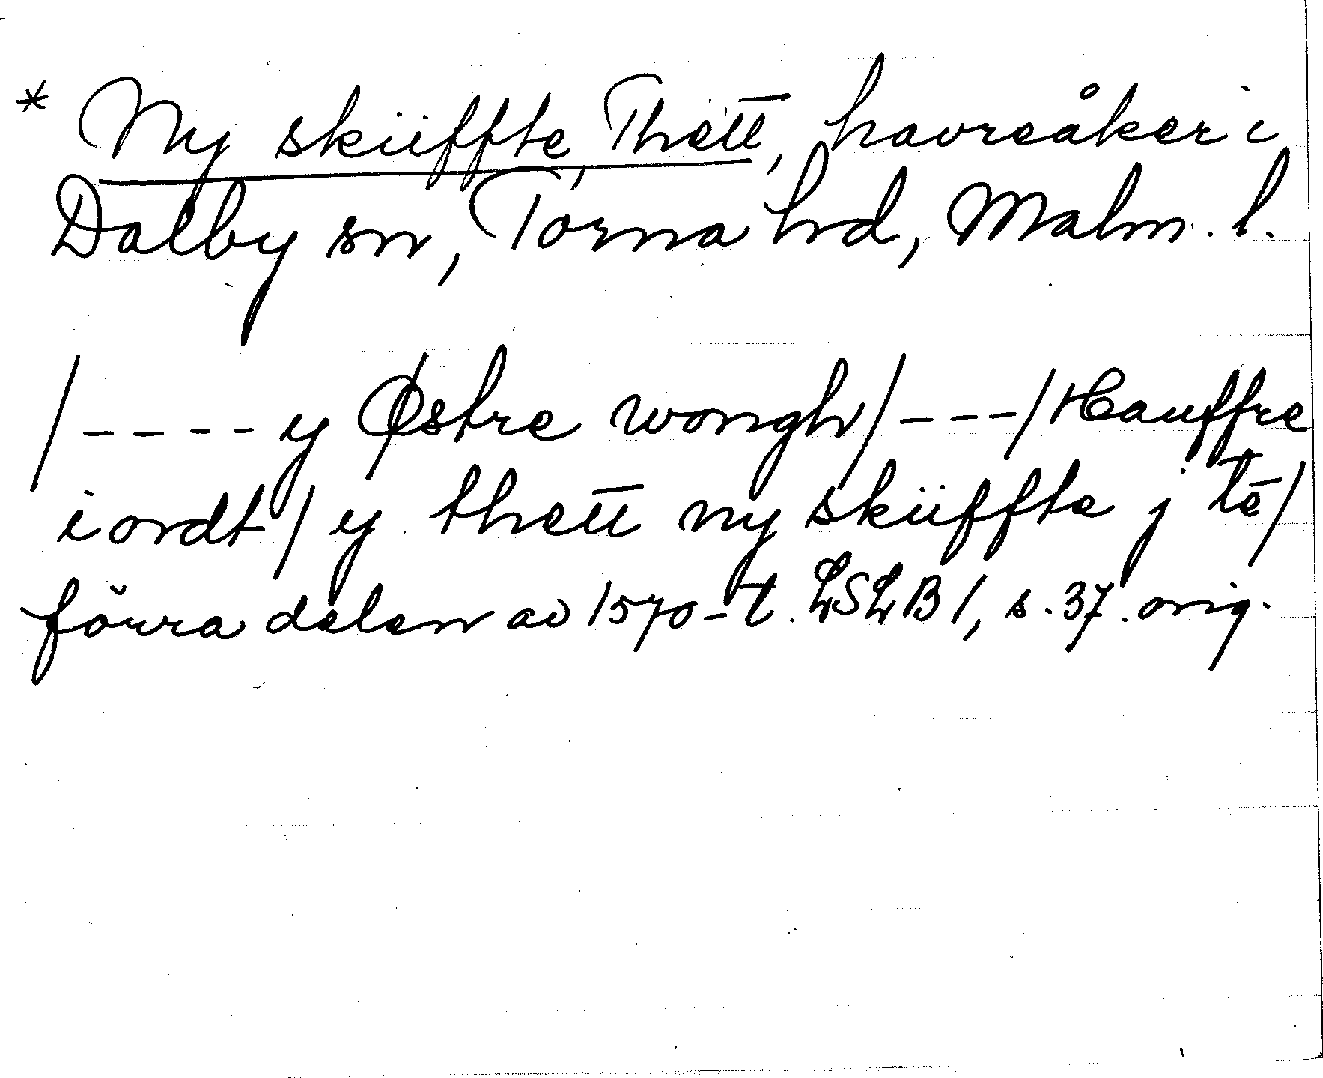 * Ny skiiffte, Thett̅, havreåker i
Dalby sn, Torna hd, Malm. l.
/---- y Østre wongh/---/Hauffre
iordt/ y thett̅ ny skiiffte j tē/
förra delen av 1570-t. LSLB 1, s. 37. orig.